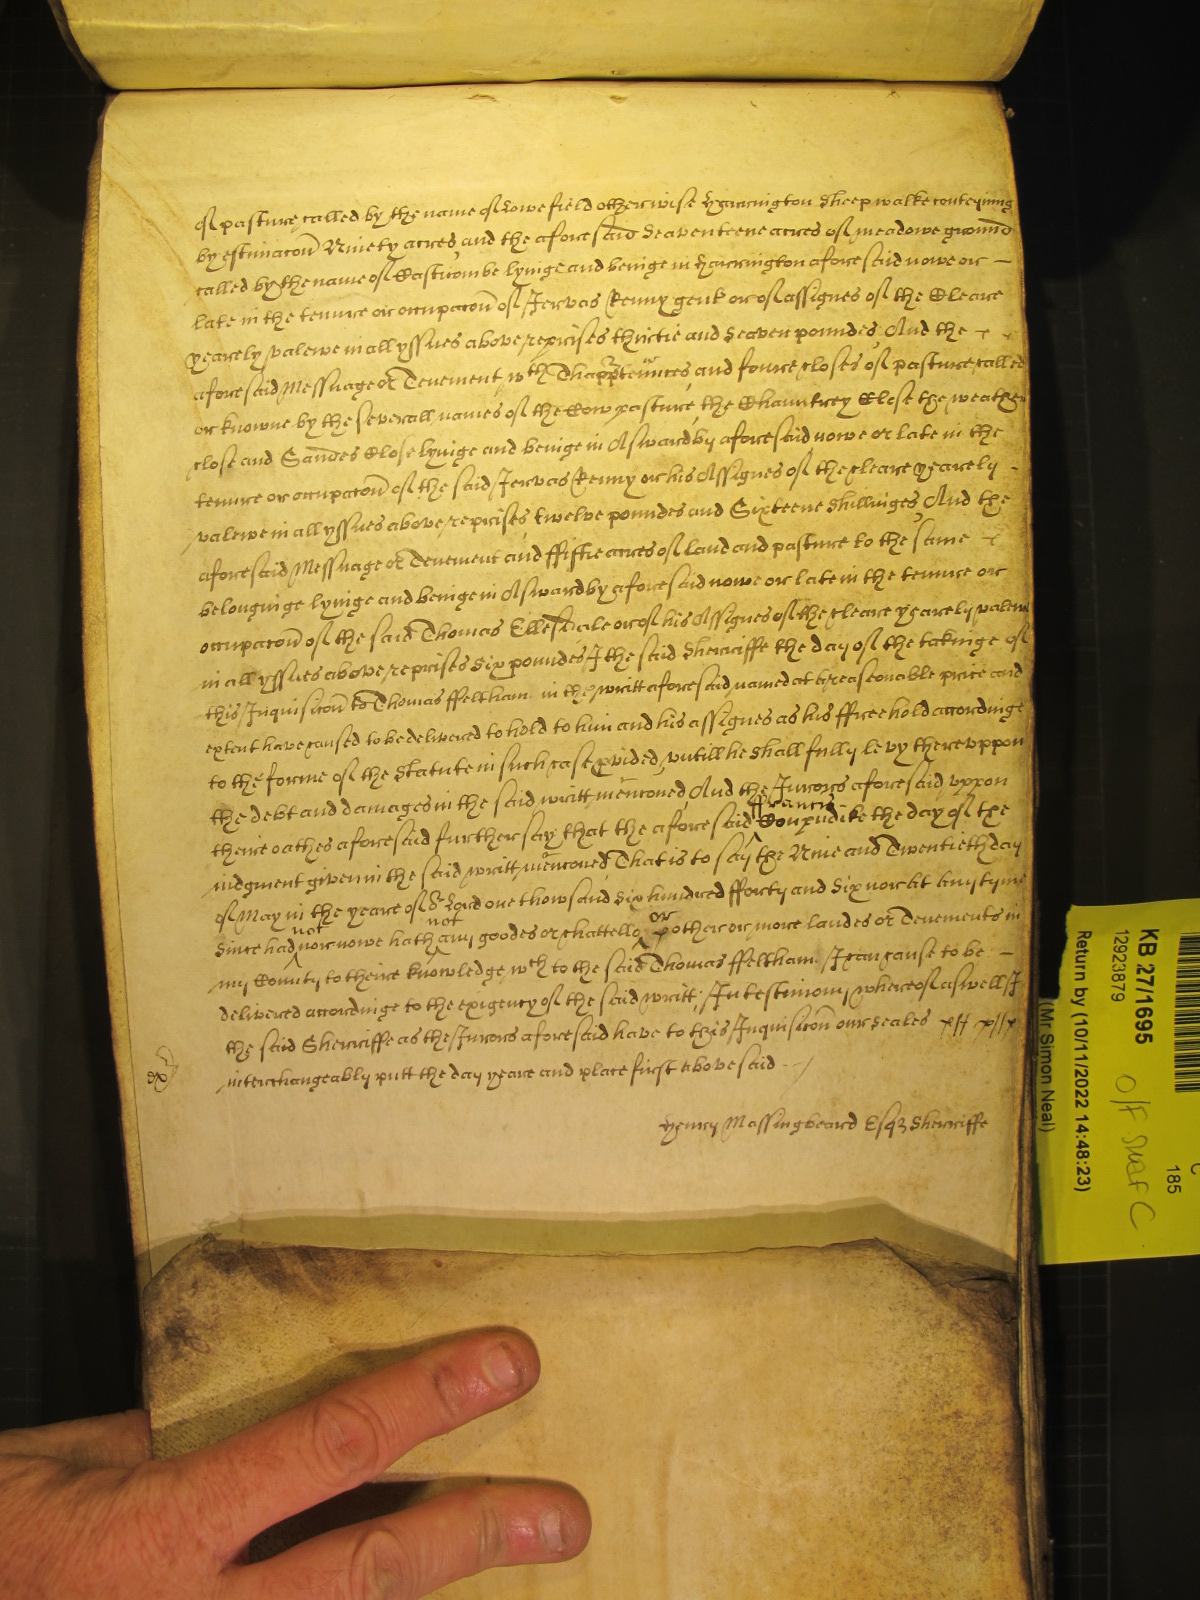 of pasture called by the name of Lowefield otherwise Harrington Sheepwalke conteyning
by estimacon Ninety acres, and the aforesaid Seaventeene acres of meadowe ground
called by the name of Eastcombe lyinge and beinge in Harrington aforesaid nowe or —
late in the tenure or occupacon of Jervas Kenny gent or of assignes of the Cleare
yearely valewe in all yssues above reprises thirtie and Seaven poundes, And the
aforesaid Messuage or Tenement wth Thapptennces and foure closes of pasture called
or knowne by the severall names of the Cow pasture, the Chauntrey Close the weather
close and Sandes Close lyinge and beinge in Aswardby aforesaid nowe or late in the
tenure or occupacon of the said Jervas Kenny or his Assignes of the cleare yearely -
valewe in all yssues above reprises twelve poundes and Sixteene Shillinges, And the
aforesaid Messuage or Tenement and ffiftie acres of land and pasture to the same
belonginge lyinge and beinge in Aswardby aforesaid nowe or late in the tenure or
occupacon of the said Thomas Ellesdale or of his Assignes of the cleare yearely valewe
in all yssues above reprises Six poundes I the said Sherriffe the day of the takinge of
this Inquisicon to Thomas ffeltham in the writt aforesaid named at a reasonable price and
extent have caused to be delivered to hold to him and his assignes as his ffreehold accordinge
to the forme of the Statute in such case pvided, untill he shall fully levy thereuppon
the debt and damages in the said writt menconed, And the Jurors aforesaid uppon
theire oathes aforesaid further say that the aforesaid ffrancis Coupuldike the day of the
iudgment given in the said writt menconed, That is to say the Nine and Twentieth day
of May in the yeare of or Lord one thowsand Six hundred fforty and Six nor at any tyme
since had not nor nowe hath not any goodes or chattells or other or more landes or Tenements in
my County to theire knowledge wch to the said Thomas ffeltham I can cause to be —
delivered accordinge to the exigency of the said writt, In testimony whereof aswell I
the said Sherriffe as the Jurors aforesaid have to this Inquisicon our seales
interchangeably putt the day yeare and place first abovesaid
Henry Massingbeard Esqz Sherriffe
KB 27/1695
12923879
Return by (10/11/2022 14:48:23)
(Mr Simon Neal)
C
185